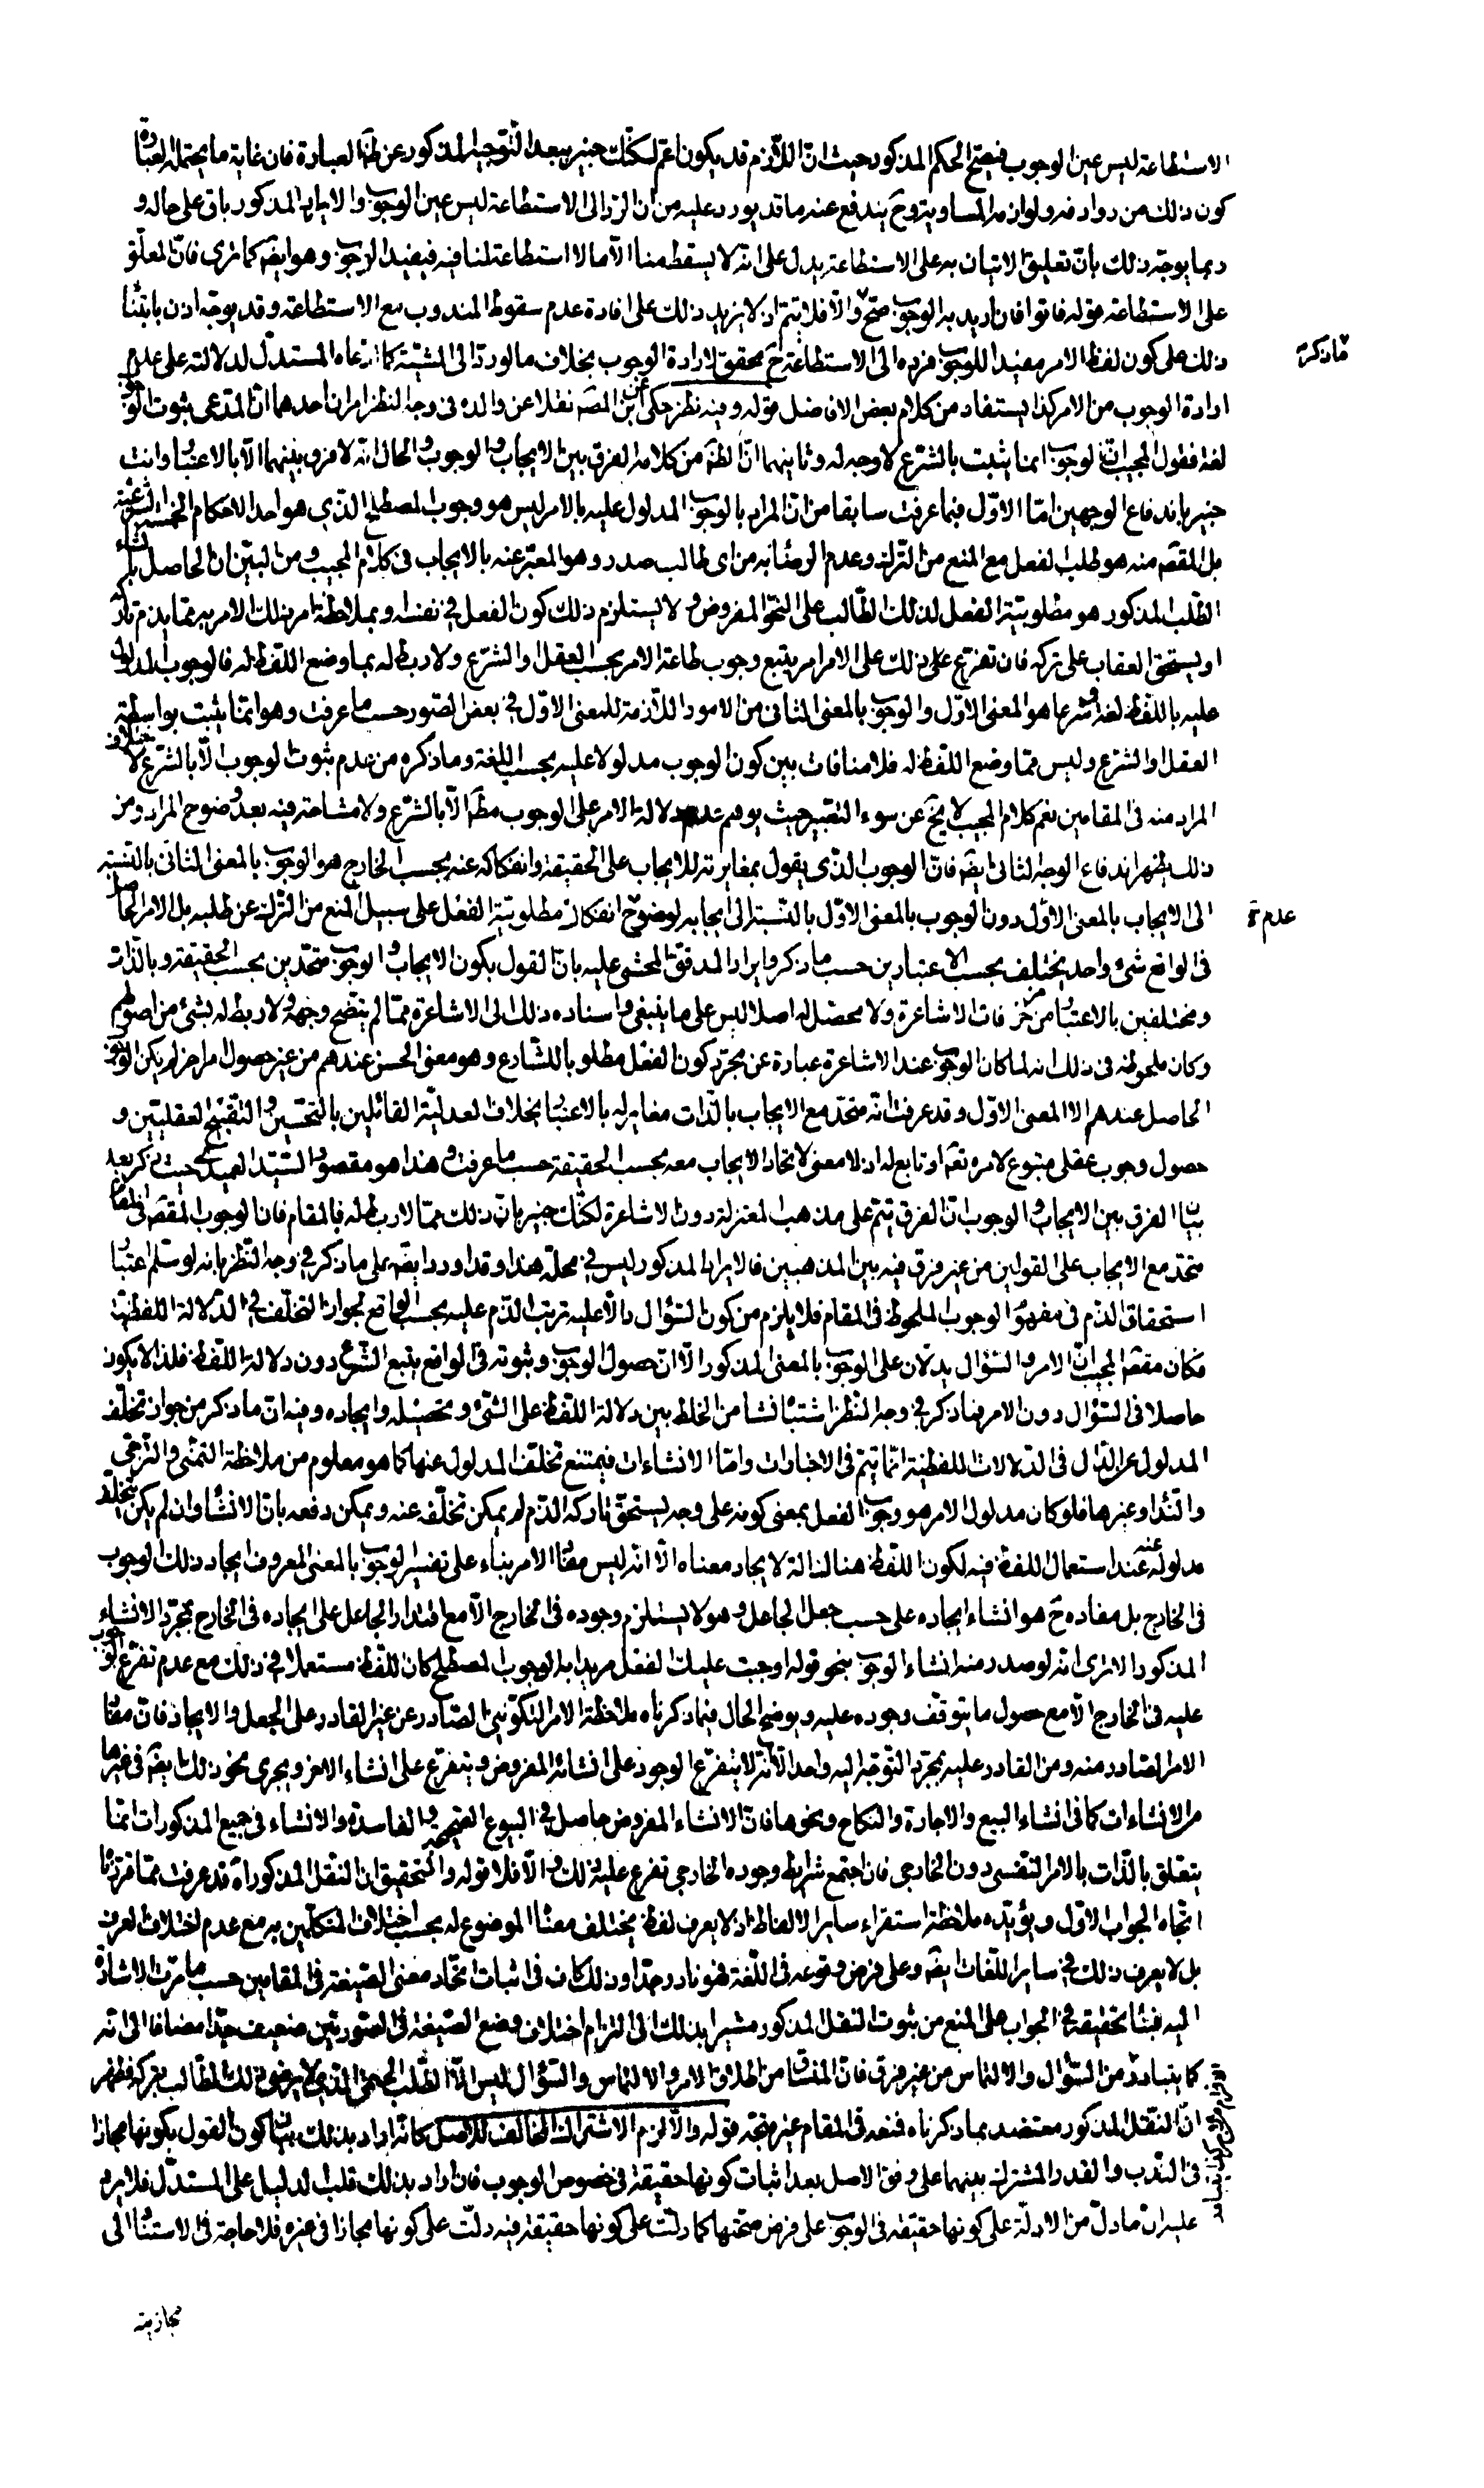 الاستطاعة ليس عين الوجوب فيصح الحكم المذكور حيث ان اللازم قد يكون اعم لكنك خبير ببعد التوجيه المذكور عن ظ العبارة فان غاية ما يحتمله العبارة
كون ذلك من روادفه ولوازمه المساوية وح يندفع عنه ما قد يورد عليه من ان الرد الى الاستطاعة ليس عين الوجوب والايراد المذكور باق على حاله و
ربما يوجه ذلك بان تعليق الاتيان به على الاستطاعة يدل على انه لا يسقط منا الا ما لا استطاعة لنا فيه فيفيد الوجوب وهو ايضَ كما ترى فان المعلق
على الاستطاعة قوله فاتوا فان اريد به الوجوب صح والا فلا يتم اذ لا يزيد ذلك على افادة عدم سقوط المندوب مع الاستطاعة وقد يوجه اذن بابتناء
ذلك على كون لفظ الامر مفيدا للوجوب فرده الى الاستطاعة ح محقق لارادة الوجوب بخلاف ما لو رد الى المشية كما ادعاه المستدل لدلالته على عدم
ما ذكره
ارادة الوجوب من الامر كذا يستفاد من كلام بعض الافاضل قوله وفيه نظر حكى عن ابن المصَ نقلا عن والده في وجه النظر امران احدهما ان المدعى ثبوت الوجوب
لغة فقول المجيب ان الوجوب انما يثبت بالشرع لا وجه له وثانيهما ان الظَ من كلامه الفرق بين الايجاب والوجوب والحال انه لا فرق بينهما الا بالاعتبار وانت
خبير باندفاع الوجهين اما الاول فبما عرفت سابقا من ان المراد بالوجوب المدلول عليه بالامر ليس هو وجوب المصطلح الذي هو احد الاحكام الخمسة الشرعية
بل المقصَ منه هو طلب الفعل مع المنع من الترك وعدم الرضا به من اى طالب صدر وهو المعبر عنه بالايجاب في كلام المجيب ومن البين ان الحاصل بانشاء
الطلب المذكور هو مطلوبية الفعل لذلك الطالب على النحو المفروض ولا يستلزم ذلك كون الفعل في نفسه وبملاحظة امر ذلك الامر به مما يذم تاركه
او يستحق العقاب على تركه فان تفرع على ذلك على الامر امر يتبع وجوب طاعة الامر بحسب العقل او الشرع ولا ربط له بما وضع اللفظ له فالوجوب المدلول
عليه باللفظ لغة وشرعا هو المعنى الاول والوجوب بالمعنى الثاني من الامور اللازمة للمعنى الاول في بعض الصور حسب ما عرفت وهو انما يثبت بواسطة
العقل او الشرع وليس مما وضع اللفظ له فلا منافات بين كون الوجوب مدلولا عليه بحسب اللغة وما ذكره من عدم ثبوت الوجوب الا بالشرع لاختلاف
المراد منه في المقامين نعم كلام المجيب لا يخ عن سوء التعبير حيث يوهم عدم دلالة الامر على الوجوب مطَ الا بالشرع ولا مشاحة فيه بعد وضوح المراد ومن
ذلك يظهر اندفاع الوجه الثاني ايضَ فان الوجوب الذي يقول بمغايرته للايجاب على الحقيقة وانفكاكه عنه بحسب الخارج هو الوجوب بالمعنى الثاني بالنسبة
الى الايجاب بالمعنى الاول دون الوجوب بالمعنى الاول بالنسبة الى ايجابه لوضوح انفكاك مطلوبية الفعل على سبيل المنع من الترك عن طلبه بل الامر الحاصل
عدم
في الواقع شيء واحد يختلف بحسب الاعتبارين حسب ما ذكر وايراد المدقق المحشى عليه بان القول بكون الايجاب والوجوب متحدين بحسب الحقيقة وبالذات
ومختلفين بالاعتبار من مزخرفات الاشاعرة ولا محصل له اصلا ليس على ما ينبغي واسناده ذلك الى الاشاعرة مما لم يتضح وجهه ولا ربط له بشيء من اصولهم
وكان ملحوظه في ذلك انه لما كان الوجوب عند الاشاعرة عبارة عن مجرد كون الفعل مطلوبا للشارع وهو معنى الحسن عندهم من غير حصول امر اخر لم يكن الوجوب
الحاصل عندهم الا المعنى الاول وقد عرفت انه متحد مع الايجاب بالذات مغاير له بالاعتبار بخلاف العدلية القائلين بالتحسين والتقبيح العقليين و
حصول وجوب عقلى متبوع لامره تعَ او تابع له اذ لا معنى لاتحاد الايجاب معه بحسب الحقيقة حسب ما عرفت وهذا هو مقصود السيد العميدي حيث ذكر بعد
بيان الفرق بين الايجاب والوجوب ان الفرق يتم على مذهب المعتزلة دون الاشاعرة لكنك خبير بان ذلك مما لا ربط له بالمقام فان الوجوب المقصَ في المقام
متحد مع الايجاب على القولين من غير فرق فيه بين المذهبين فالايراد المذكور ليس في محله هذا وقد اورد ايضَ على ما ذكر في وجه النظر بانه لو سلم اعتبار
استحقاق الذم في مفهوم الوجوب الملحوظ في المقام فلا يلزم من كون السؤال دالا عليه ترتب الذم عليه بحسب الواقع لجواز التخلف في الدلالة اللفظية
فكان مقصَ المجيب ان الامر والسؤال يدلان على الوجوب بالمعنى المذكور الا ان حصول الوجوب وثبوته في الواقع يتبع الشرع دون دلالة اللفظ فلذا لا يكون
حاصلا في السؤال دون الامر فما ذكر في وجه النظر اشتباه نشا من الخلط بين دلالة اللفظ على الشيء وتحصيله وايجاده وفيه ان ما ذكر من جواز تخلف
المدلول عن الدال في الدلالات اللفظية انما يتم في الاخبارات واما الانشاءات فيمتنع تخلف المدلول عنها كما هو معلوم من ملاحظة التمني والترجي
والنداء وغيرها فلو كان مدلول الامر هو وجوب الفعل بمعنى كونه على وجه يستحق تاركه الذم لم يمكن تخلفه عنه ويمكن دفعه بان الانشاء وان لم يكن يتخلف
مدلوله عنه عند استعمال اللفظ فيه لكون اللفظ هنالك الة لايجاد معناه الا انه ليس مفاد الامر بناء على تفسير الوجوب بالمعنى المعروف ايجاد ذلك الوجوب
في الخارج بل مفاده ح هو انشاء ايجاده على حسب جعل الجاعل وهو لا يستلزم وجوده في الخارج الا مع اقتدار الجاعل على ايجاده في الخارج بمجرد الانشاء
المذكور الا ترى انه لو صدر منه انشاء الوجوب بنحو قوله اوجبت عليك الفعل مريدا به الوجوب المصطلح كان اللفظ مستعملا في ذلك مع عدم تفرع الوجوب
عليه في الخارج الا مع حصول ما يتوقف وجوده عليه ويوضح الحال فيما ذكرناه ملاحظة الامر التكويني الصادر عن غير القادر على الجعل والايجاد فان مفاد
الامر الصادر منه ومن القادر عليه بمجرد التوجه اليه واحد الا انه لا يتفرع الوجود على انشائه المفروض ويتفرع على انشاء الاخر ويجري نحو ذلك ايضَ في غيرها
من الانشاءات كما في انشاء البيع والاجارة والنكاح ونحوها فان الانشاء المفروض حاصل في البيوع الصحيحة والفاسدة والانشاء في جميع المذكورات انما
يتعلق بالذات بالامر النفسي دون الخارجي فان اجتمع شرايط وجوده الخارجي تفرع عليه ذلك والا فلا قوله والتحقيق ان النقل المذكور اه قد عرفت مما قررنا
اتجاه الجواب الاول ويؤيده ملاحظة استقراء ساير الالفاظ اذ لا يعرف لفظ يختلف معناه الموضوع له بحسب اختلاف المتكلمين به مع عدم اختلاف العرف
بل لا يعرف ذلك في ساير اللغات ايضَ وعلى فرض وقوعه في اللغة فهو نادر جدا وذلك كاف في اثبات اتحاد معنى الصيغة في المقامين حسب ما مرت الاشارة
اليه فبناء تحقيقه في الجواب على المنع من ثبوت النقل المذكور مشيرا بذلك الى التزام اختلاف وضع الصيغة في الصورتين ضعيف جدا مضافا الى انه
كما يتبادر من السؤال والالتماس من غير فرق فان المنساق من اطلاق الامر والالتماس والسؤال ليس الا الطلب الحتمي الذي لا يرضى ذلك الطالب بتركه فظهر
ان النقل المذكور معتضد بما ذكرناه فمنعه في المقام غير متجه قوله والا لزم الاشتراك المخالف للاصل كانه اراد بذلك بيان كون القول بكونها مجازا
في الندب والقدر المشترك بينهما على وفق الاصل بعد اثبات كونها حقيقة في خصوص الوجوب فان اراد بذلك قلب الدليل على المستدل فلا يرد
عليه ان ما دل من الادلة على كونها حقيقة في الوجوب على فرض صحتها كما دلت على كونها حقيقة فيه دلت على كونها مجازا في غيره فلا حاجة في الاستناد الى
مجازيته